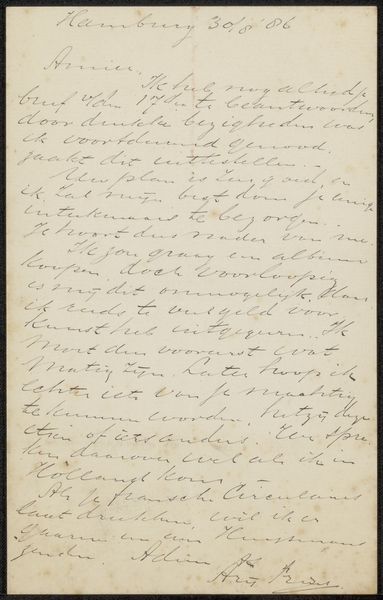 Hamburg 30/8 '86
Amice,
Ik heb nog altijd je
brief v/den 17den te beantwoorden,
door drukke bezigheden was
ik voortdurend genood-
zaakt dit uittestellen.
Uw plan is zeer goed, en
ik zal mijn best doen je eenige
inteekenaars te bezorgen.
Je hoort dus nader van me.
Ik zou graag een album
koopen, doch voorloopig
is mij dit onmogelijk,
ik reeds te veel geld voor
kunst heb uitgegeven. Ik
moet dus vooreerst wat
matig zijn. Later hoop ik
echter iets van je machtig
te kunnen worden, hetzij deze
etsen of iets anders. We spre-
ken daarover wel als ik in
Holland kom.
Als je fransche Circulaires
laat drukken, wil ik er
gaarne en aan Huysmans
zenden. Adieu
Arij Prins